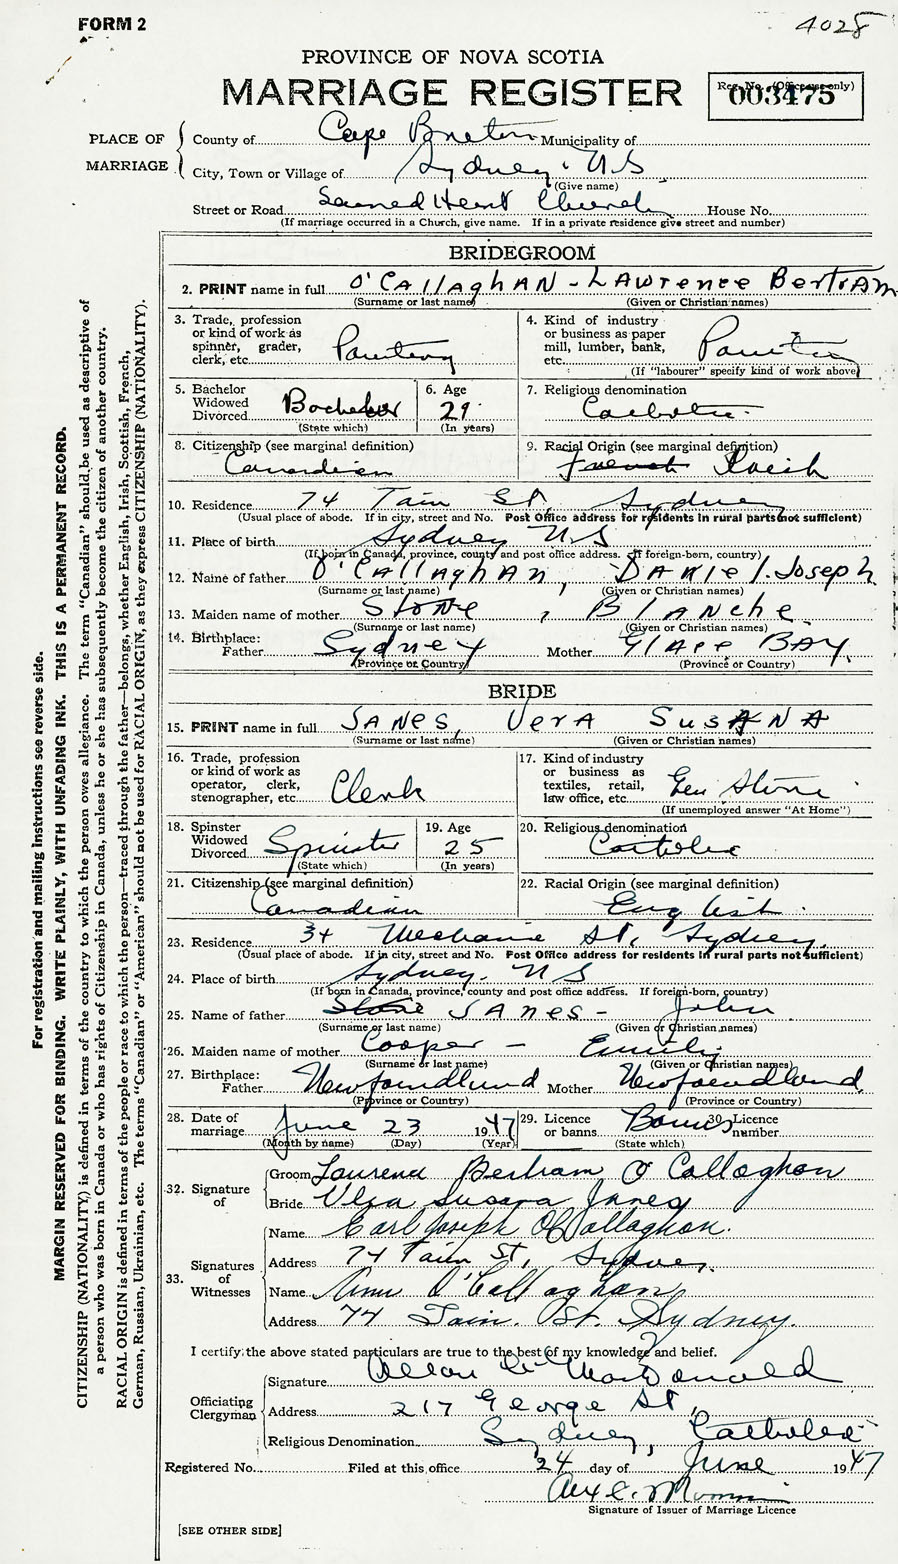 FORM 2
4028
PROVINCE OF NOVA SCOTIA
MARRIAGE REGISTER
Reg. No. (Office use only)
003475
PLACE OF MARRIAGE
County of Cape Breton Municipality of
City, Town or Village of Sydney N S
(Give name)
Street or Road Sacred Heart Church House No.
(If marriage occurred in a Church, give name. If in a private residence give street and number)
BRIDEGROOM
2. PRINT name in full O'CAllAghAN - LAWrence BertrAm
(Surname or last name) (Given or Christian names)
3. Trade, profession or kind of work as spinner, grader, clerk, etc.
4. Kind of industry or business as paper mill, lumber, bank, etc.
(If "labourer" specify kind of work above)
5. Bachelor Widowed Divorced Bachelor
(State which)
6. Age 29
(In years)
7. Religious denomination Catholic
8. Citizenship (see marginal definition) Canadian
9. Racial Origin (see marginal definition) French Irish
10. Residence 74 Tain St, Sydney
(Usual place of abode. If in city, street and No. Post Office address for residents in rural parts not sufficient)
11. Place of birth Sydney N S
(If born in Canada, province, county and post office address. If foreign-born, country)
12. Name of father O'CAllAghAN, DANiel Joseph
(Surname or last name) (Given or Christian names)
13. Maiden name of mother Stone, BlANche
(Surname or last name) (Given or Christian names)
14. Birthplace: Father Sydney Mother GlAce BAY
(Province or Country) (Province or Country)
BRIDE
15. PRINT name in full JANES, VerA SusANA
(Surname or last name) (Given or Christian names)
16. Trade, profession or kind of work as operator, clerk, stenographer, etc. Clerk
17. Kind of industry or business as textiles, retail, law office, etc. Gen Store
(If unemployed answer "At Home")
18. Spinster Widowed Divorced Spinster
(State which)
19. Age 25
(In years)
20. Religious denomination Catholic
21. Citizenship (see marginal definition) Canadian
22. Racial Origin (see marginal definition) English
23. Residence 34 Mechanic St, Sydney
(Usual place of abode. If in city, street and No. Post Office address for residents in rural parts not sufficient)
24. Place of birth Sydney N S
(If born in Canada, province, county and post office address. If foreign-born, country)
25. Name of father Stone JANES - John
(Surname or last name) (Given or Christian names)
26. Maiden name of mother Cooper - Emily
(Surname or last name) (Given or Christian names)
27. Birthplace: Father Newfoundland Mother Newfoundland
(Province or Country) (Province or Country)
28. Date of marriage June 23 1947
(Month by name) (Day) (Year)
29. Licence or banns Banns
(State which)
30. Licence number
32. Signature of
Groom Laurence Bertram O Callaghan
Bride Vera Susana Janes
33. Signatures of Witnesses
Name Earl Joseph O'Callaghan.
Address 74 Tain St, Sydney.
Name Ann O'Callaghan
Address 74 Tain. St. Sydney.
I certify the above stated particulars are true to the best of my knowledge and belief.
Officiating Clergyman
Signature MacDonald
Address 217 George St,
Religious Denomination Sydney, Catholic
Registered No. Filed at this office 24 day of June 1947
Signature of Issuer of Marriage Licence
[SEE OTHER SIDE]
For registration and mailing instructions see reverse side.
MARGIN RESERVED FOR BINDING. WRITE PLAINLY, WITH UNFADING INK. THIS IS A PERMANENT RECORD.
CITIZENSHIP (NATIONALITY) is defined in terms of the country to which the person owes allegiance. The term "Canadian" should be used as descriptive of
a person who was born in Canada or who has rights of Citizenship in Canada, unless he or she has subsequently become the citizen of another country.
RACIAL ORIGIN is defined in terms of the people or race to which the person—traced through the father—belongs, whether English, Irish, Scottish, French,
German, Russian, Ukrainian, etc. The terms "Canadian" or "American" should not be used for RACIAL ORIGIN, as they express CITIZENSHIP (NATIONALITY).